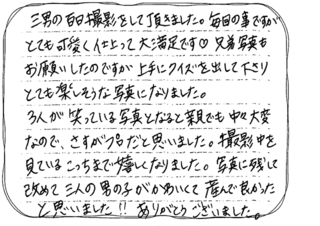 三男の百日撮影をして頂きました。毎回の事ですが
とても可愛く仕上って大満足です♡兄弟写真も
お願いしたのですが上手にクイズを出して下さり
とても楽しそうな写真になりました。
3人が笑っている写真となると親でも中々大変
なので、さすがプロだと思いました。撮影中を
見ているこっちまで嬉しくなりました。写真に残して
改めて三人の男の子がかわいくて産んで良かった
と思いました!!ありがとうございました。